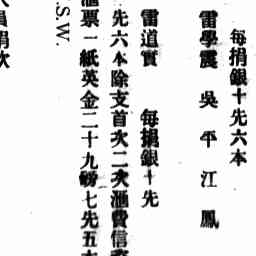 每捐銀十先六本
雷學震 吳平 江鳳
雷道實 每捐銀十先
先六本除支首次二次滙費信
滙票一紙英金二十九磅七先五本
S.W.
員捐欠